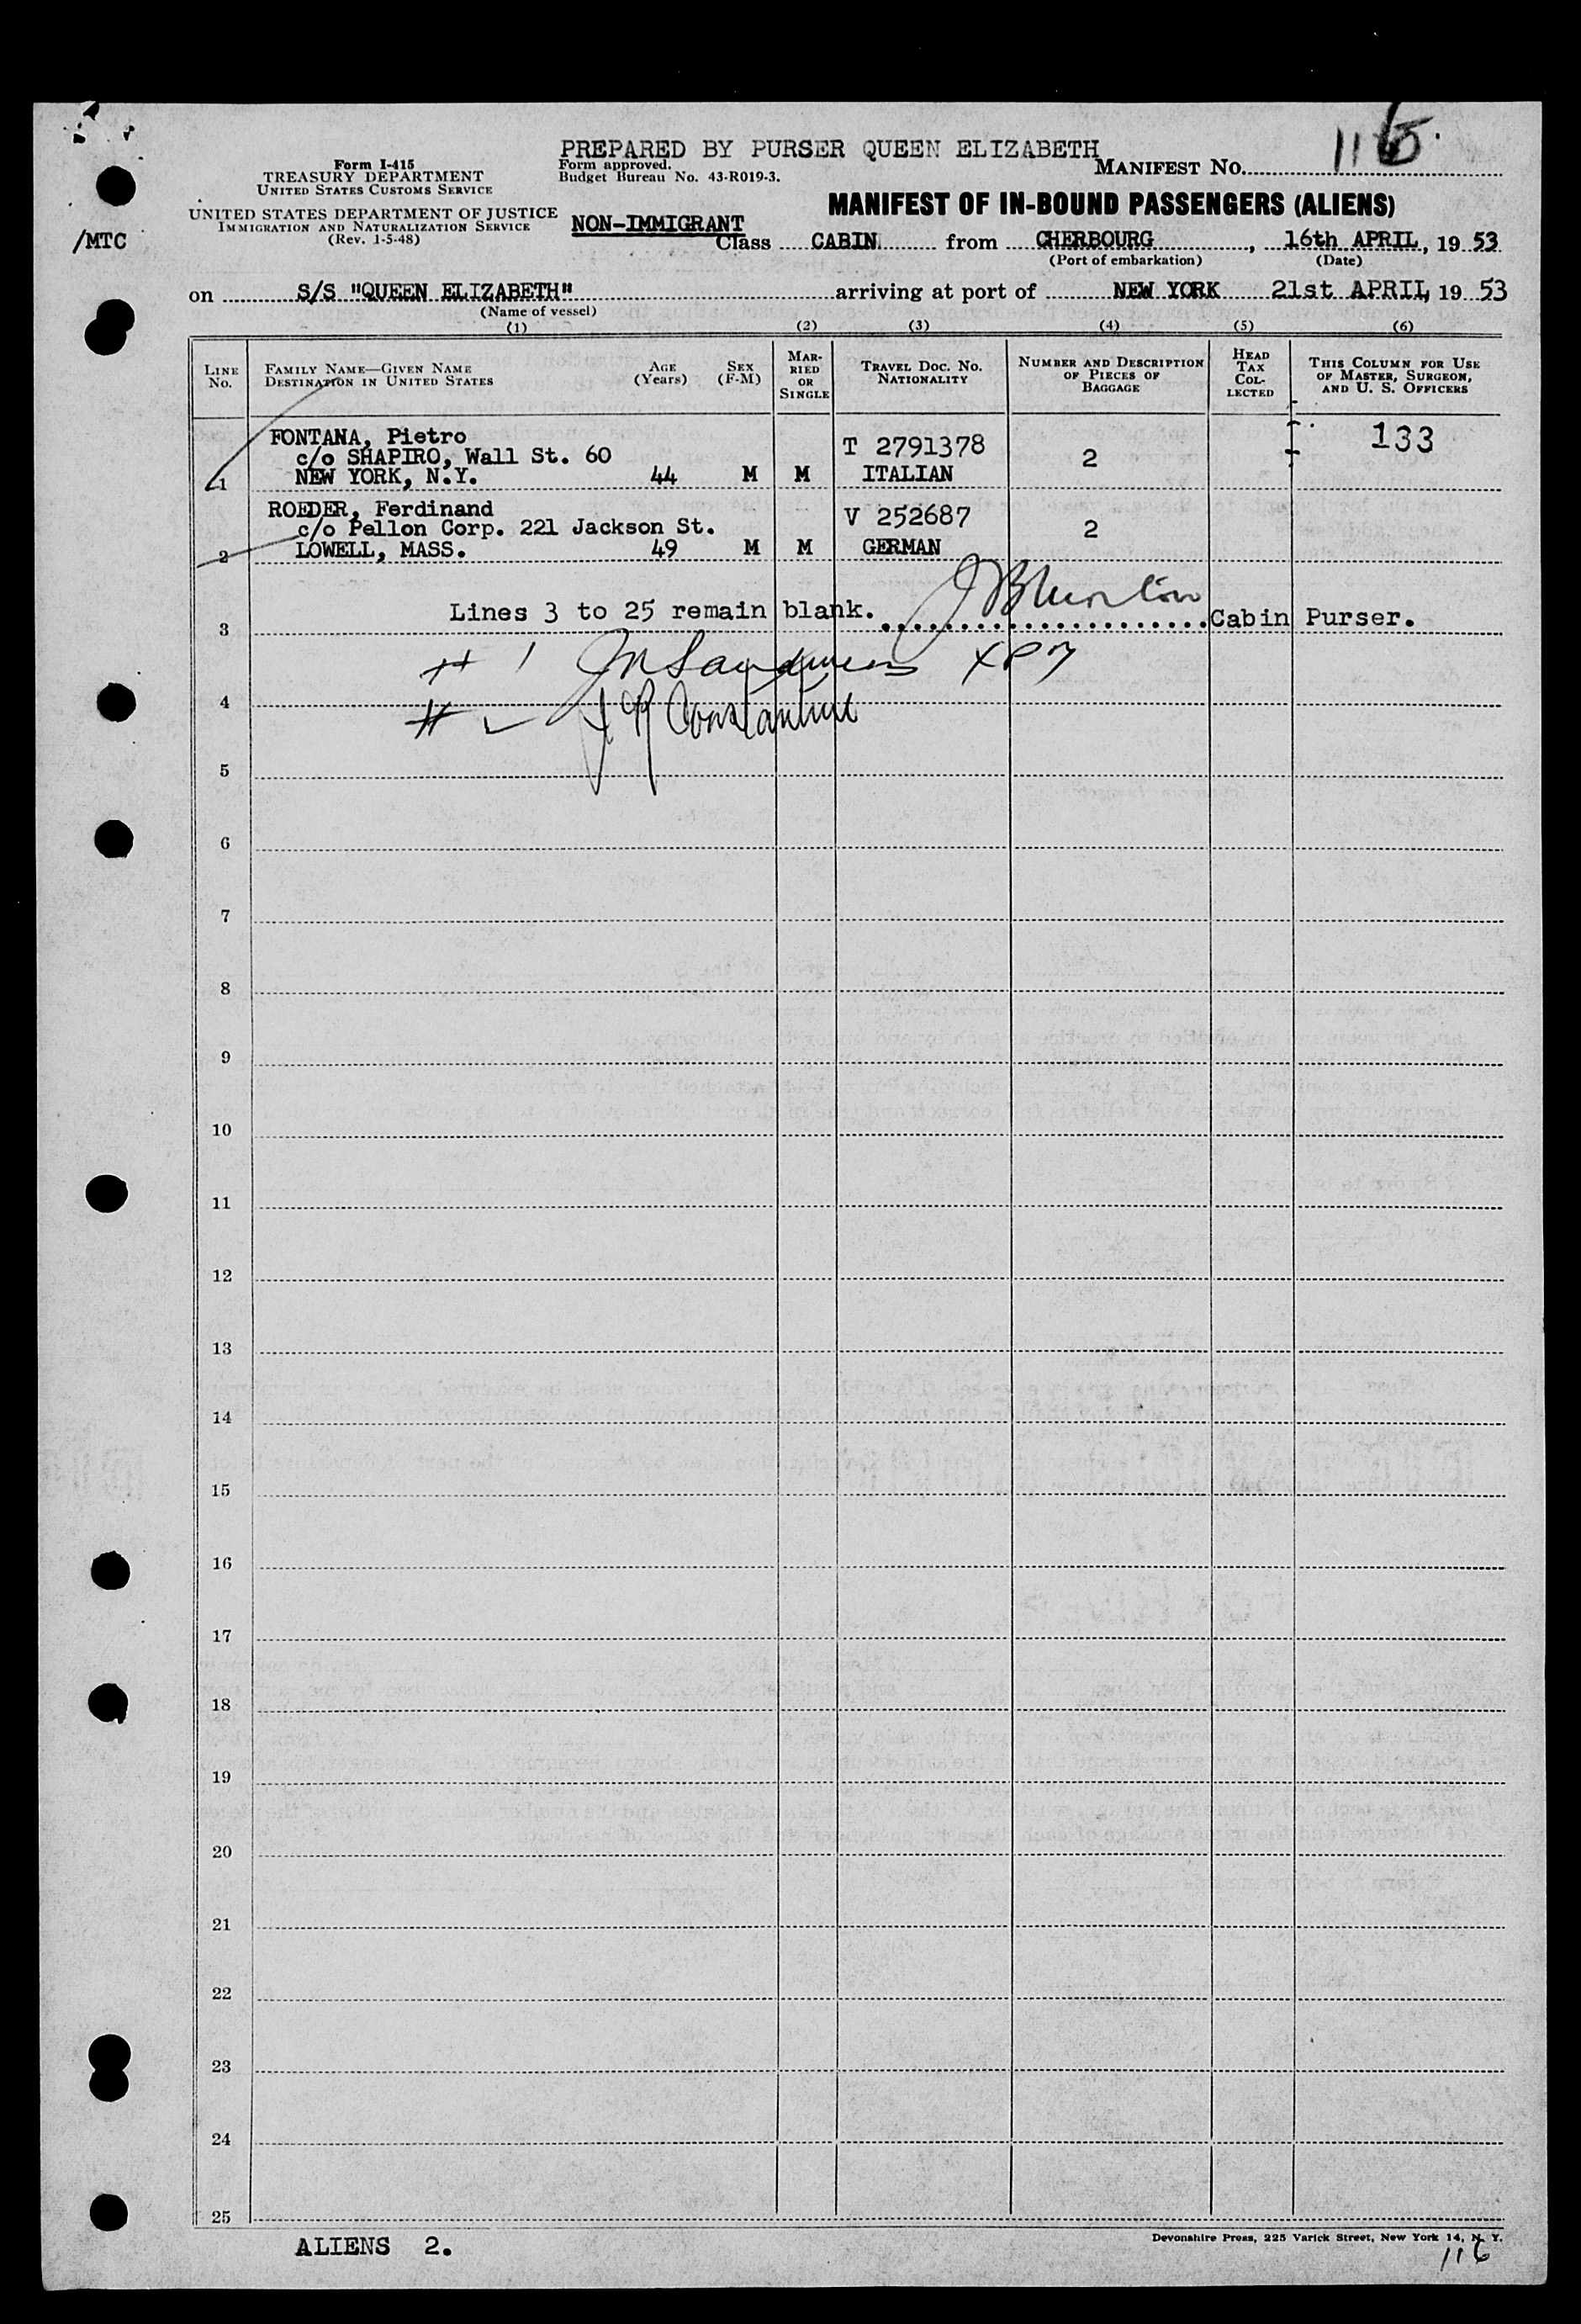 PREPARED BY PURSER QUEEN ELIZABETH
Form I-415
TREASURY DEPARTMENT
UNITED STATES CUSTOMS SERVICE
UNITED STATES DEPARTMENT OF JUSTICE
IMMIGRATION AND NATURALIZATION SERVICE
(Rev. 1-5-48)
/MTC
Form approved.
Budget Bureau No. 43-R019-3.
MANIFEST NO.
MANIFEST OF IN-BOUND PASSENGERS (ALIENS)
NON-IMMIGRANT
Class CABIN from CHERBOURG, 16th APRIL, 19 53
(Port of embarkation) (Date)
on S/S "QUEEN ELIZABETH" arriving at port of NEW YORK 21st APRIL, 19 53
(Name of vessel)
(1) (2) (3) (4) (5) (6)
LINE NO. FAMILY NAME—GIVEN NAME DESTINATION IN UNITED STATES AGE (Years) SEX (F-M) MARRIED OR SINGLE TRAVEL DOC. NO. NATIONALITY NUMBER AND DESCRIPTION OF PIECES OF BAGGAGE HEAD TAX COLLECTED THIS COLUMN FOR USE OF MASTER, SURGEON, AND U. S. OFFICERS
FONTANA, Pietro T 2791378 133
c/o SHAPIRO, Wall St. 60 2
1 NEW YORK, N.Y. 44 M M ITALIAN
ROEDER, Ferdinand V 252687
c/o Pellon Corp. 221 Jackson St. 2
2 LOWELL, MASS. 49 M M GERMAN
3 Lines 3 to 25 remain blank. Cabin Purser.
# 1
4 #
5
6
7
8
9
10
11
12
13
14
15
16
17
18
19
20
21
22
23
24
25
ALIENS 2.
Devonshire Press, 225 Varick Street, New York 14, N. Y.
116